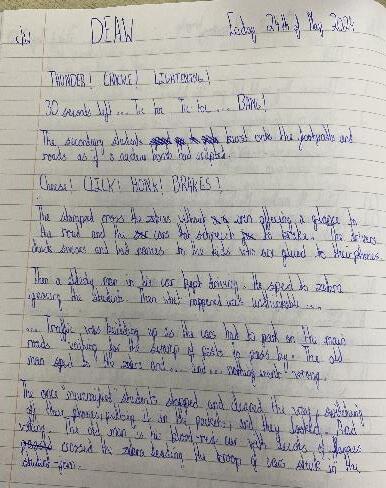 c/w DEAW Friday 24th of May 2024
THUNDER! CRACKLE! LIGHTENING!
30 seconds left... Tic toc Tic toc... BANG!
The secondary students burst onto the footpaths and
roads as if a nuclear bomb had erupted.
Cheese! CLICK! HONK! BRAKES!
The stamped cross the zebras without even offering a glance to
the road and the cars had screech to brake. The drivers
curses and bad names to the kids who are glued to their phones.
Then a man in the car kept driving. He sped to zebra
the students. Then what happened was unthinkable....
... Traffic was building up as the cars had to park on the main
roads waiting for the swamp of to pass by. The old
man sped to the zebra and... and... nothing went wrong.
The once students stopped and cleared the way, switching
off their phones, putting it in the pockets, and they looked. And
waiting. The old man in the blood-red car with decades of
crossed the zebra leading the troop of cars stuck in the
student-jam.